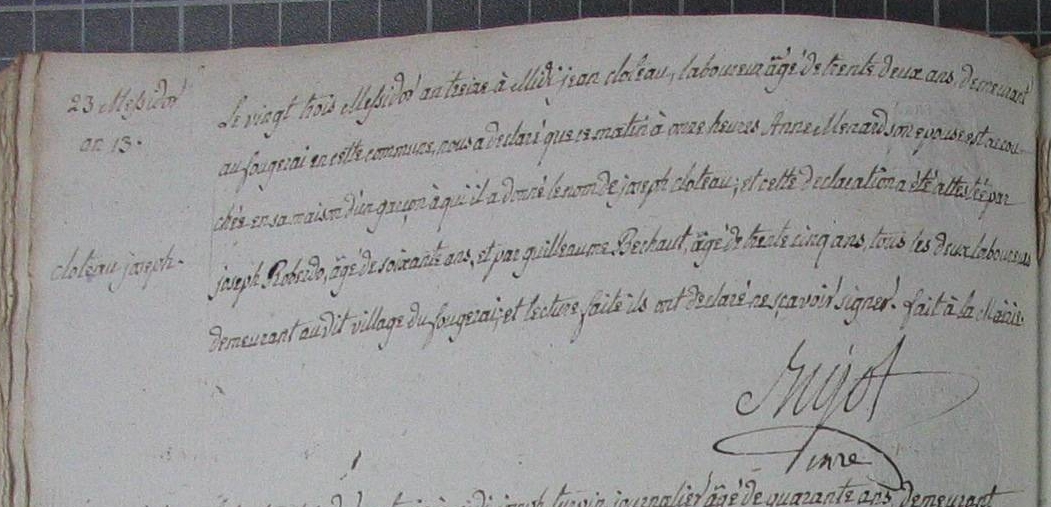 23 Messidor
an 13.
cloteau joseph.
Le vingt trois Messidor an treize à Midi, jean cloteau, laboureur, âgé de trente deux ans, demeurant
au fougerai en cette commune, nous a declaré que ce matin à onze heures Anne Menard son epouse est accou-
chée en sa maison d'un garçon à qui il a donné le nom de joseph cloteau; et cette declaration a été attestée par
joseph Roberdo, âgé de soixante ans, et par guilleaume Bechaut, âgé de trente cinq ans, tous les deux laboureurs
demeurant audit village du fougerai; et lecture faite ils ont declaré ne sçavoir signer. fait à la Mairie.
joseph journalier âgé de quarante ans, demeurant